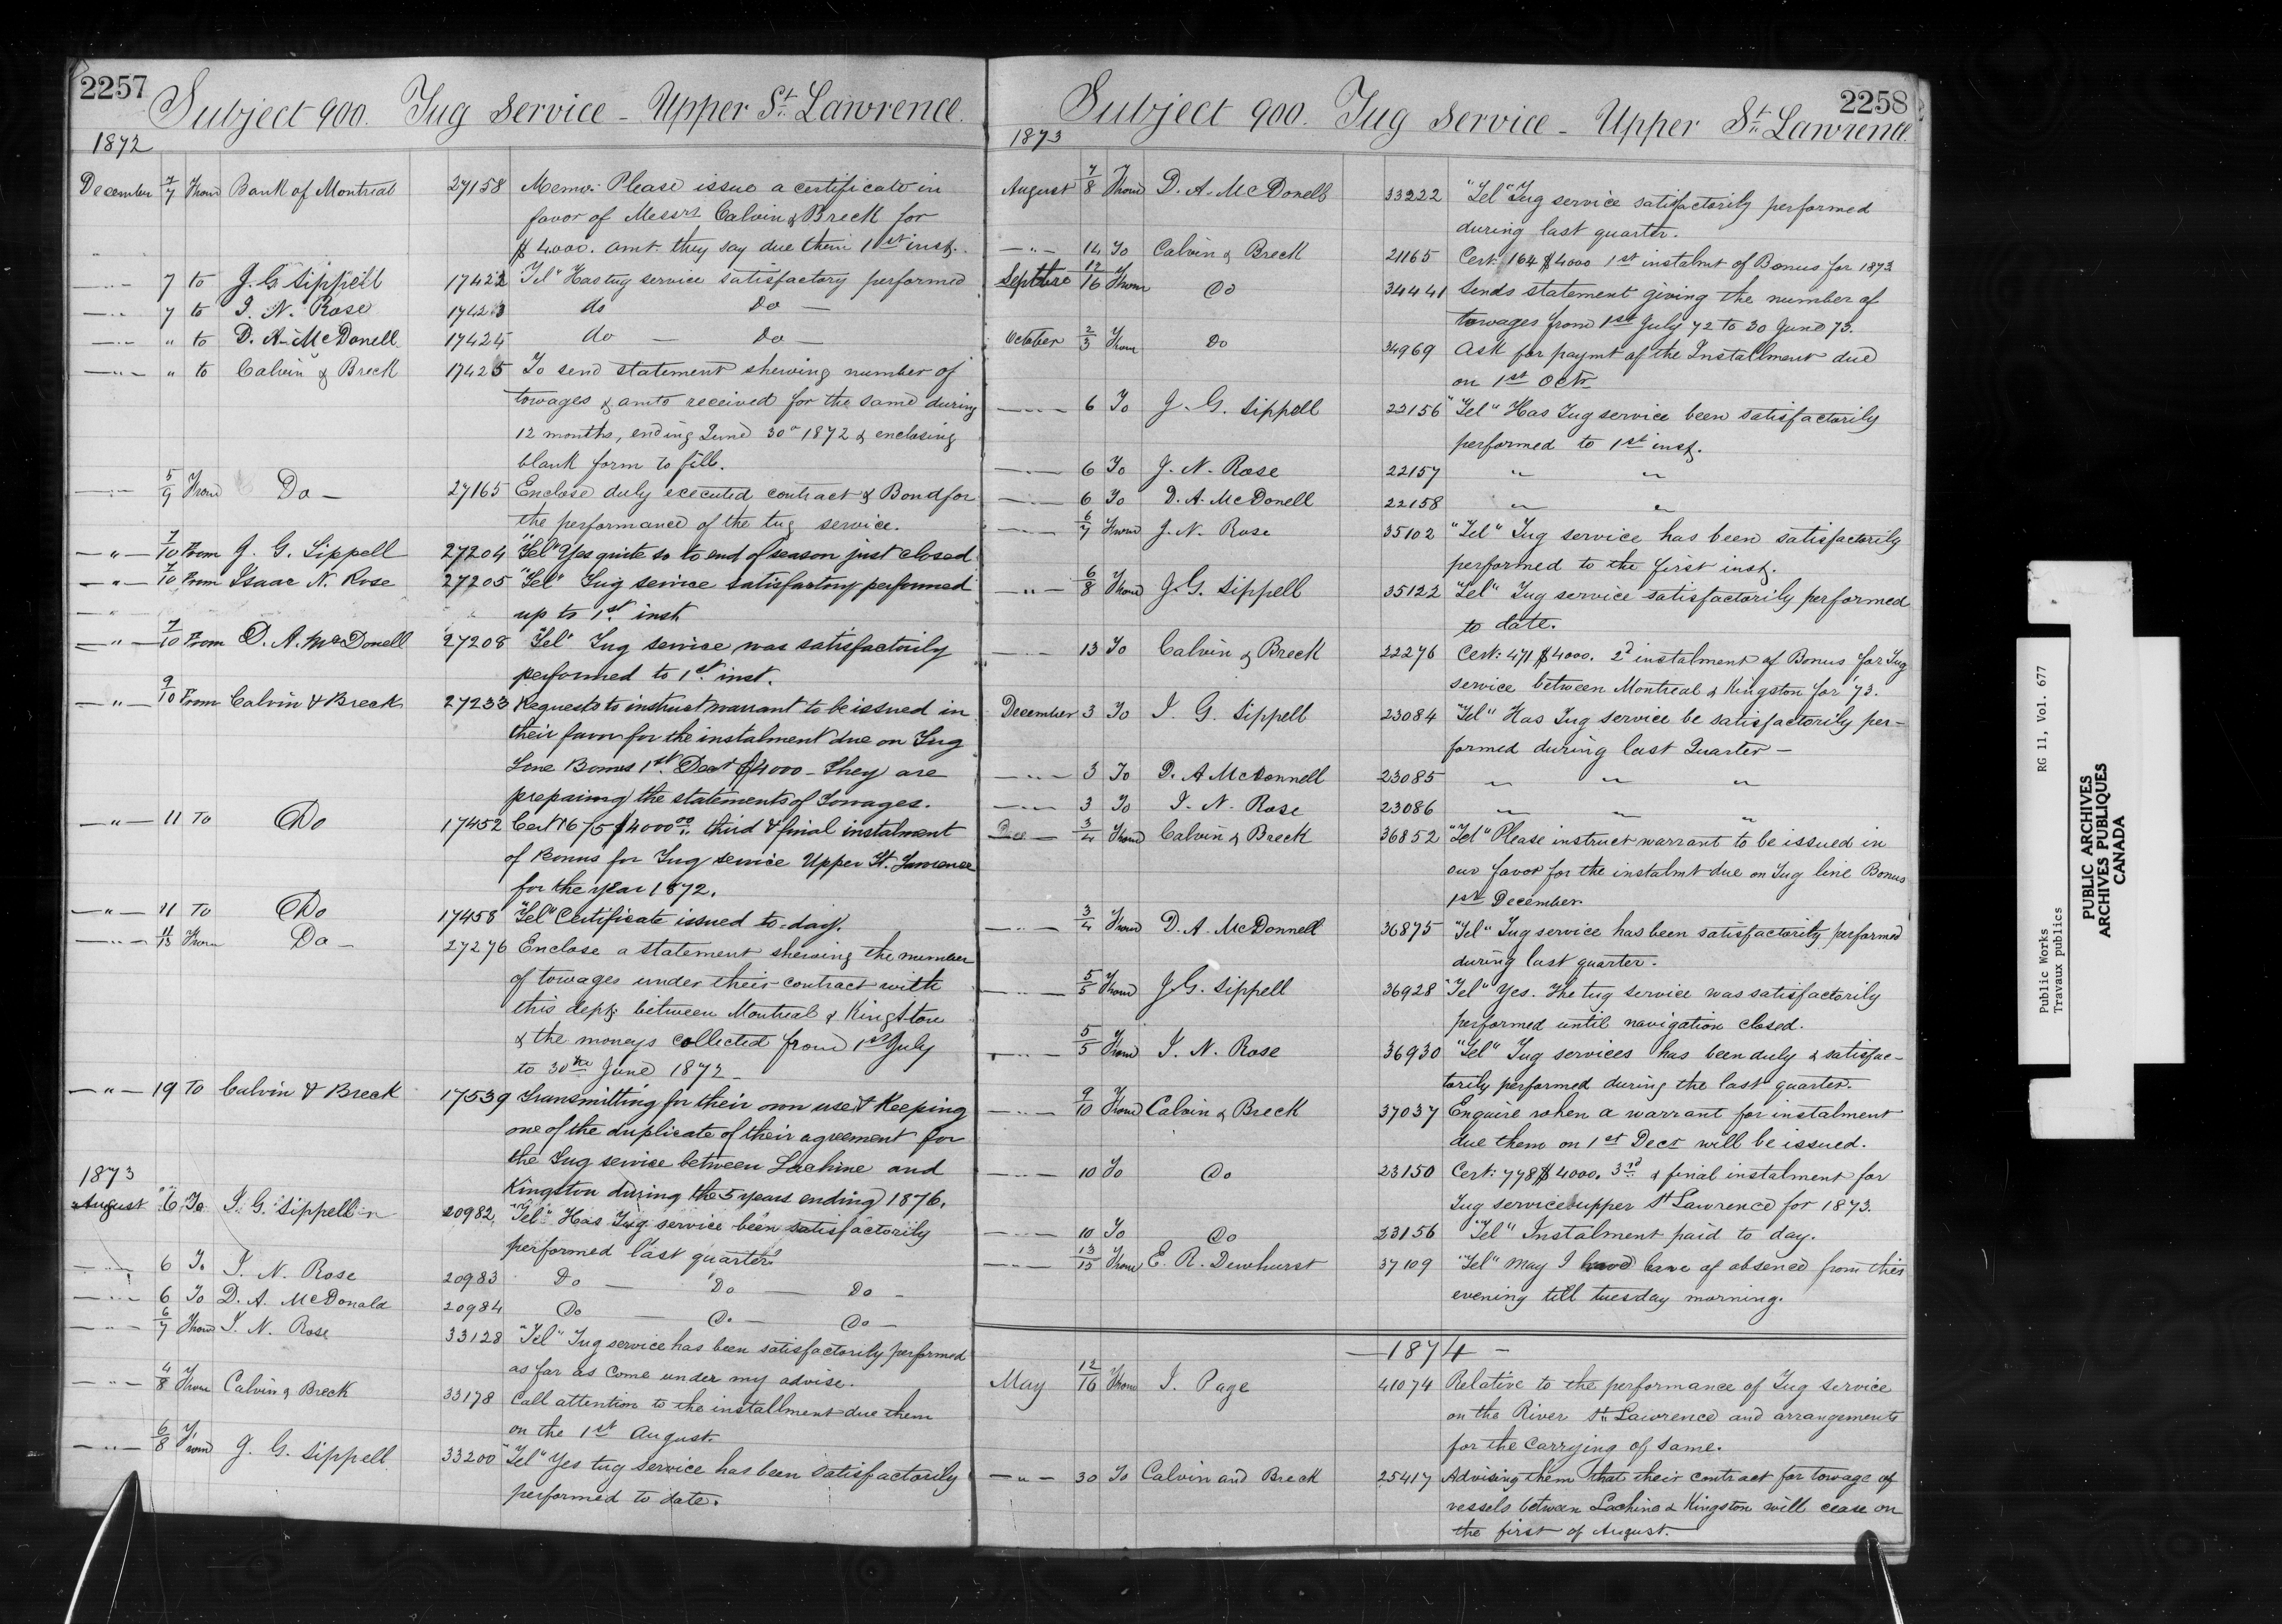 2257
Subject 900. Tug Service - Upper St. Lawrence.
1872
December 7/7 From Bank of Montreal 27158 Memo: Please issue a certificate in
favor of Messrs Calvin & Breck for
$4000. amt. they say due them 1st inst.
—"— 7 to J. G. Sippell 17422 "Tel" Has tug service satisfactory performed
—"— 7 to I. N. Rose 17423 do Do —
—"— " to D. A. McDonell 17424 do — Do —
—"— " to Calvin & Breck 17425 To send statement shewing number of
towages & amts received for the same during
12 months, ending June 30th 1872 & enclosing
blank form to fill.
—"— 5/9 From Do — 27165 Enclose duly executed contract & Bond for
the performance of the tug service.
—"— 7/10 From J. G. Sippell 27204 "Tel" Yes quite so to end of season just closed
—"— 7/10 From Isaac N. Rose 27205 "Tel" Tug service satisfactory performed
up to 1st inst
—"— 7/10 From D. A. McDonell 27208 "Tel" Tug service was satisfactorily
performed to 1st inst.
—"— 9/10 From Calvin & Breck 27233 Requests to instruct warrant to be issued in
their favor for the instalment due on Tug
Line Bonus 1st Dect $4000 - They are
preparing the statements of Towages.
—"— 11 To Do 17452 Cert 1675 $4000.00 third & final instalment
of Bonus for Tug service Upper St. Lawrence
for the year 1872.
—"— 11 To Do 17458 "Tel" Certificate issued to-day.
—"— 11/13 From Do — 27276 Enclose a statement shewing the number
of towages under their contract with
this dept. between Montreal & Kingston
& the moneys collected from 1st July
to 30th June 1872 -
—"— 19 To Calvin & Breck 17539 Transmitting for their own use & Keeping
one of the duplicate of their agreement for
the Tug service between Lachine and
Kingston during the 5 years ending 1876.
1873
August 6 To J. G. Sippell 20982 "Tel" Has Tug service been satisfactorily
performed last quarter?
—"— 6 To I. N. Rose 20983 Do — Do — Do —
—"— 6 To D. A. McDonald 20984 Do — Do — Do —
—"— 6/7 From I. N. Rose 33128 "Tel" Tug service has been satisfactorily performed
as far as come under my advise.
—"— 4/8 From Calvin & Breck 33178 Call attention to the installment due them
on the 1st August.
—"— 6/8 From J. G. Sippell 33200 "Tel" Yes tug service has been satisfactorily
performed to date.
2258
Subject 900. Tug Service - Upper St. Lawrence.
1873
August 7/8 From D. A. McDonell 33222 "Tel" Tug service satisfactorily performed
during last quarter.
—"— 14 To Calvin & Breck 21165 Cert: 164 $4000 1st instalmt of Bonus for 1873
Septbre 12/16 From Do 34441 Sends statement giving the number of
towages from 1st July 72 to 30 June 73.
October 2/3 From Do 34969 Ask for paymt of the Installment due
on 1st Octr
—"— 6 To J. G. Sippell 22156 "Tel" Has Tug service been satisfactorily
performed to 1st inst.
—"— 6 To J. N. Rose 22157 " "
—"— 6 To D. A. McDonell 22158 " "
—"— 6/7 From J. N. Rose 35102 "Tel" Tug service has been satisfactorily
performed to the first inst.
—"— 6/8 From J. G. Sippell 35122 "Tel" Tug service satisfactorily performed
to date.
—"— 13 To Calvin & Breck 22276 Cert: 471 $4000. 2d instalment of Bonus for Tug
service between Montreal & Kingston for '73.
December 3 To J. G. Sippell 23084 "Tel" Has Tug service be satisfactorily per-
formed during last Quarter —
—"— 3 To D. A McDonnell 23085 " " "
—"— 3 To I. N. Rose 23086 " " "
Dec — 3/4 From Calvin & Breck 36852 "Tel" Please instruct warrant to be issued in
our favor for the instalmt due on Tug line Bonus
1st December.
—"— 3/4 From D. A. McDonnell 36875 "Tel" Tug service has been satisfactorily performed
during last quarter.
—"— 5/5 From J. G. Sippell 36928 "Tel" Yes. The tug service was satisfactorily
performed until navigation closed.
—"— 5/5 From I. N. Rose 36930 "Tel" Tug services has been duly & satisfac-
torily performed during the last quarter.
—"— 9/10 From Calvin & Breck 37037 Enquire when a warrant for instalment
due them on 1st Decr will be issued.
—"— 10 To Do 23150 Cert: 778 $4000. 3rd & final instalment for
Tug service upper St Lawrence for 1873.
—"— 10 To Do 23156 "Tel" Instalment paid to day.
—"— 13/15 From E. R. Dewhurst 37109 "Tel" May I have leave of absence from this
evening till tuesday morning.
— 1874 —
May 12/16 From J. Page 41074 Relative to the performance of Tug service
on the River St. Lawrence and arrangements
for the Carrying of same.
—"— 30 To Calvin and Breck 25417 Advising them that their contract for towage of
vessels between Lachine & Kingston will cease on
the first of August.
Public Works RG 11, Vol. 677
Travaux publics
PUBLIC ARCHIVES
ARCHIVES PUBLIQUES
CANADA